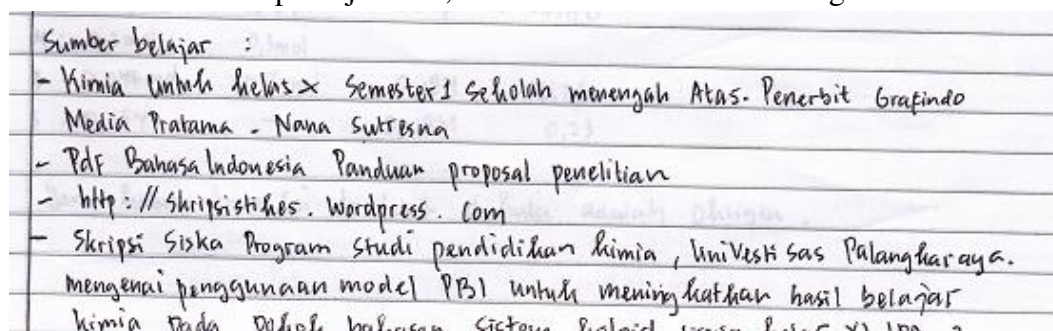 Sumber belajar :
- Kimia untuk kelas X Semester 1 Sekolah menengah Atas. Penerbit Grafindo
Media Pratama - Nana Sutresna
- Pdf Bahasa Indonesia Panduan proposal penelitian
- http://skripsistikes.wordpress.com
- Skripsi Siska Program studi pendidikan kimia, Univesti sas Palangkaraya.
mengenai penggunaan model PBI untuk meningkatkan hasil belajar
kimia pada pokok bahasan sistem koloid